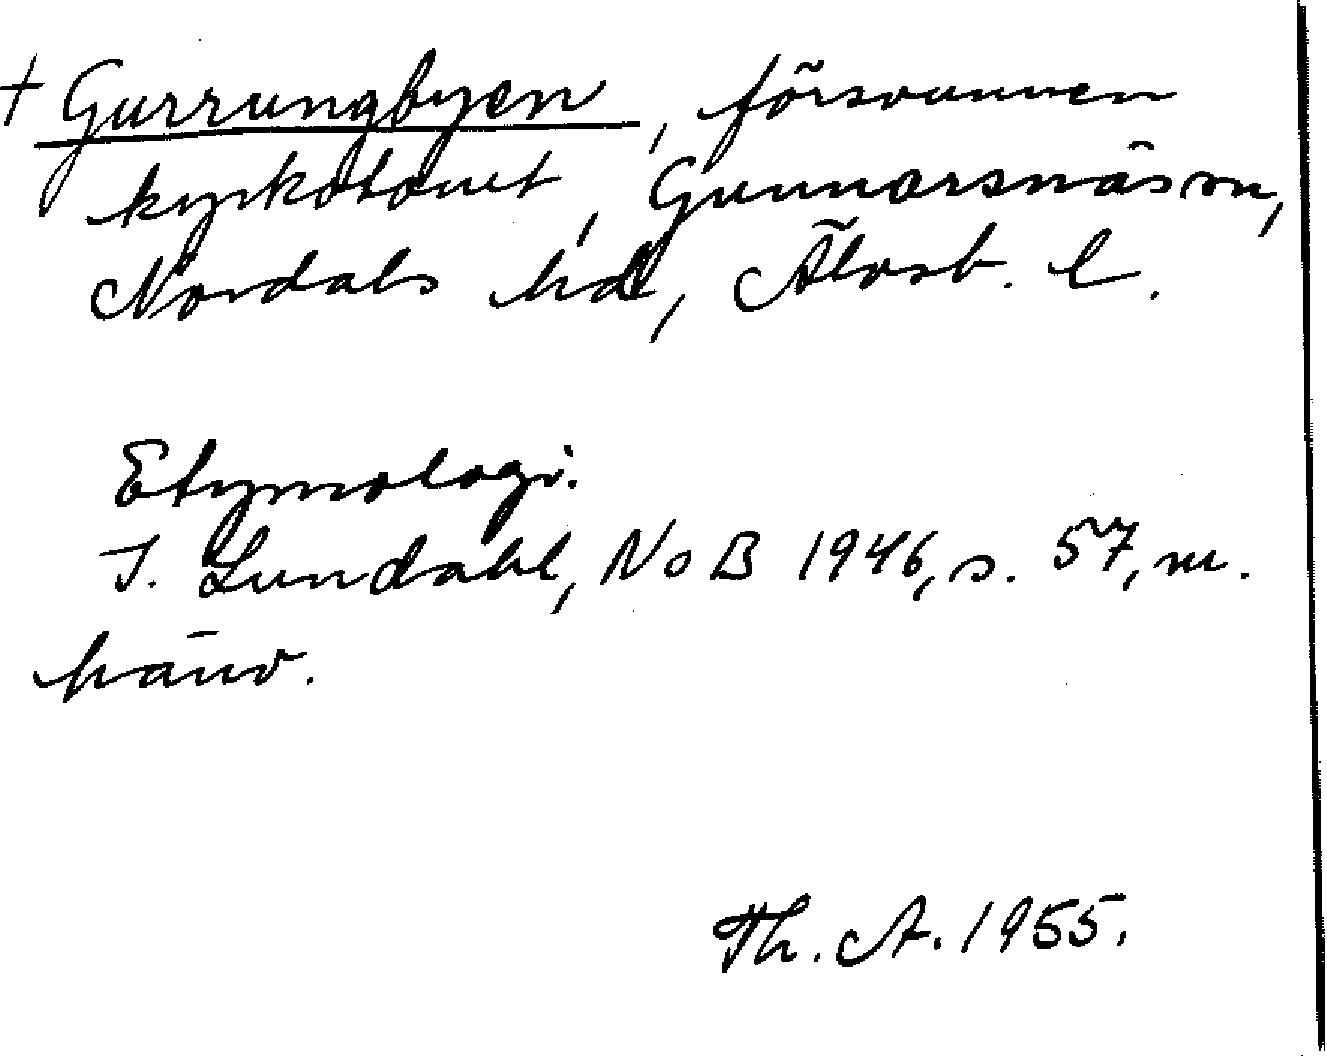 † Gurrungbyen, försvunnen
kyrkotomt, Gunnarsnäs sn,
Nordals hd, Älvsb. l.
Etymologi.
I. Lundahl, NoB 1946, s. 57, m.
hänv.
Th. A. 1955.